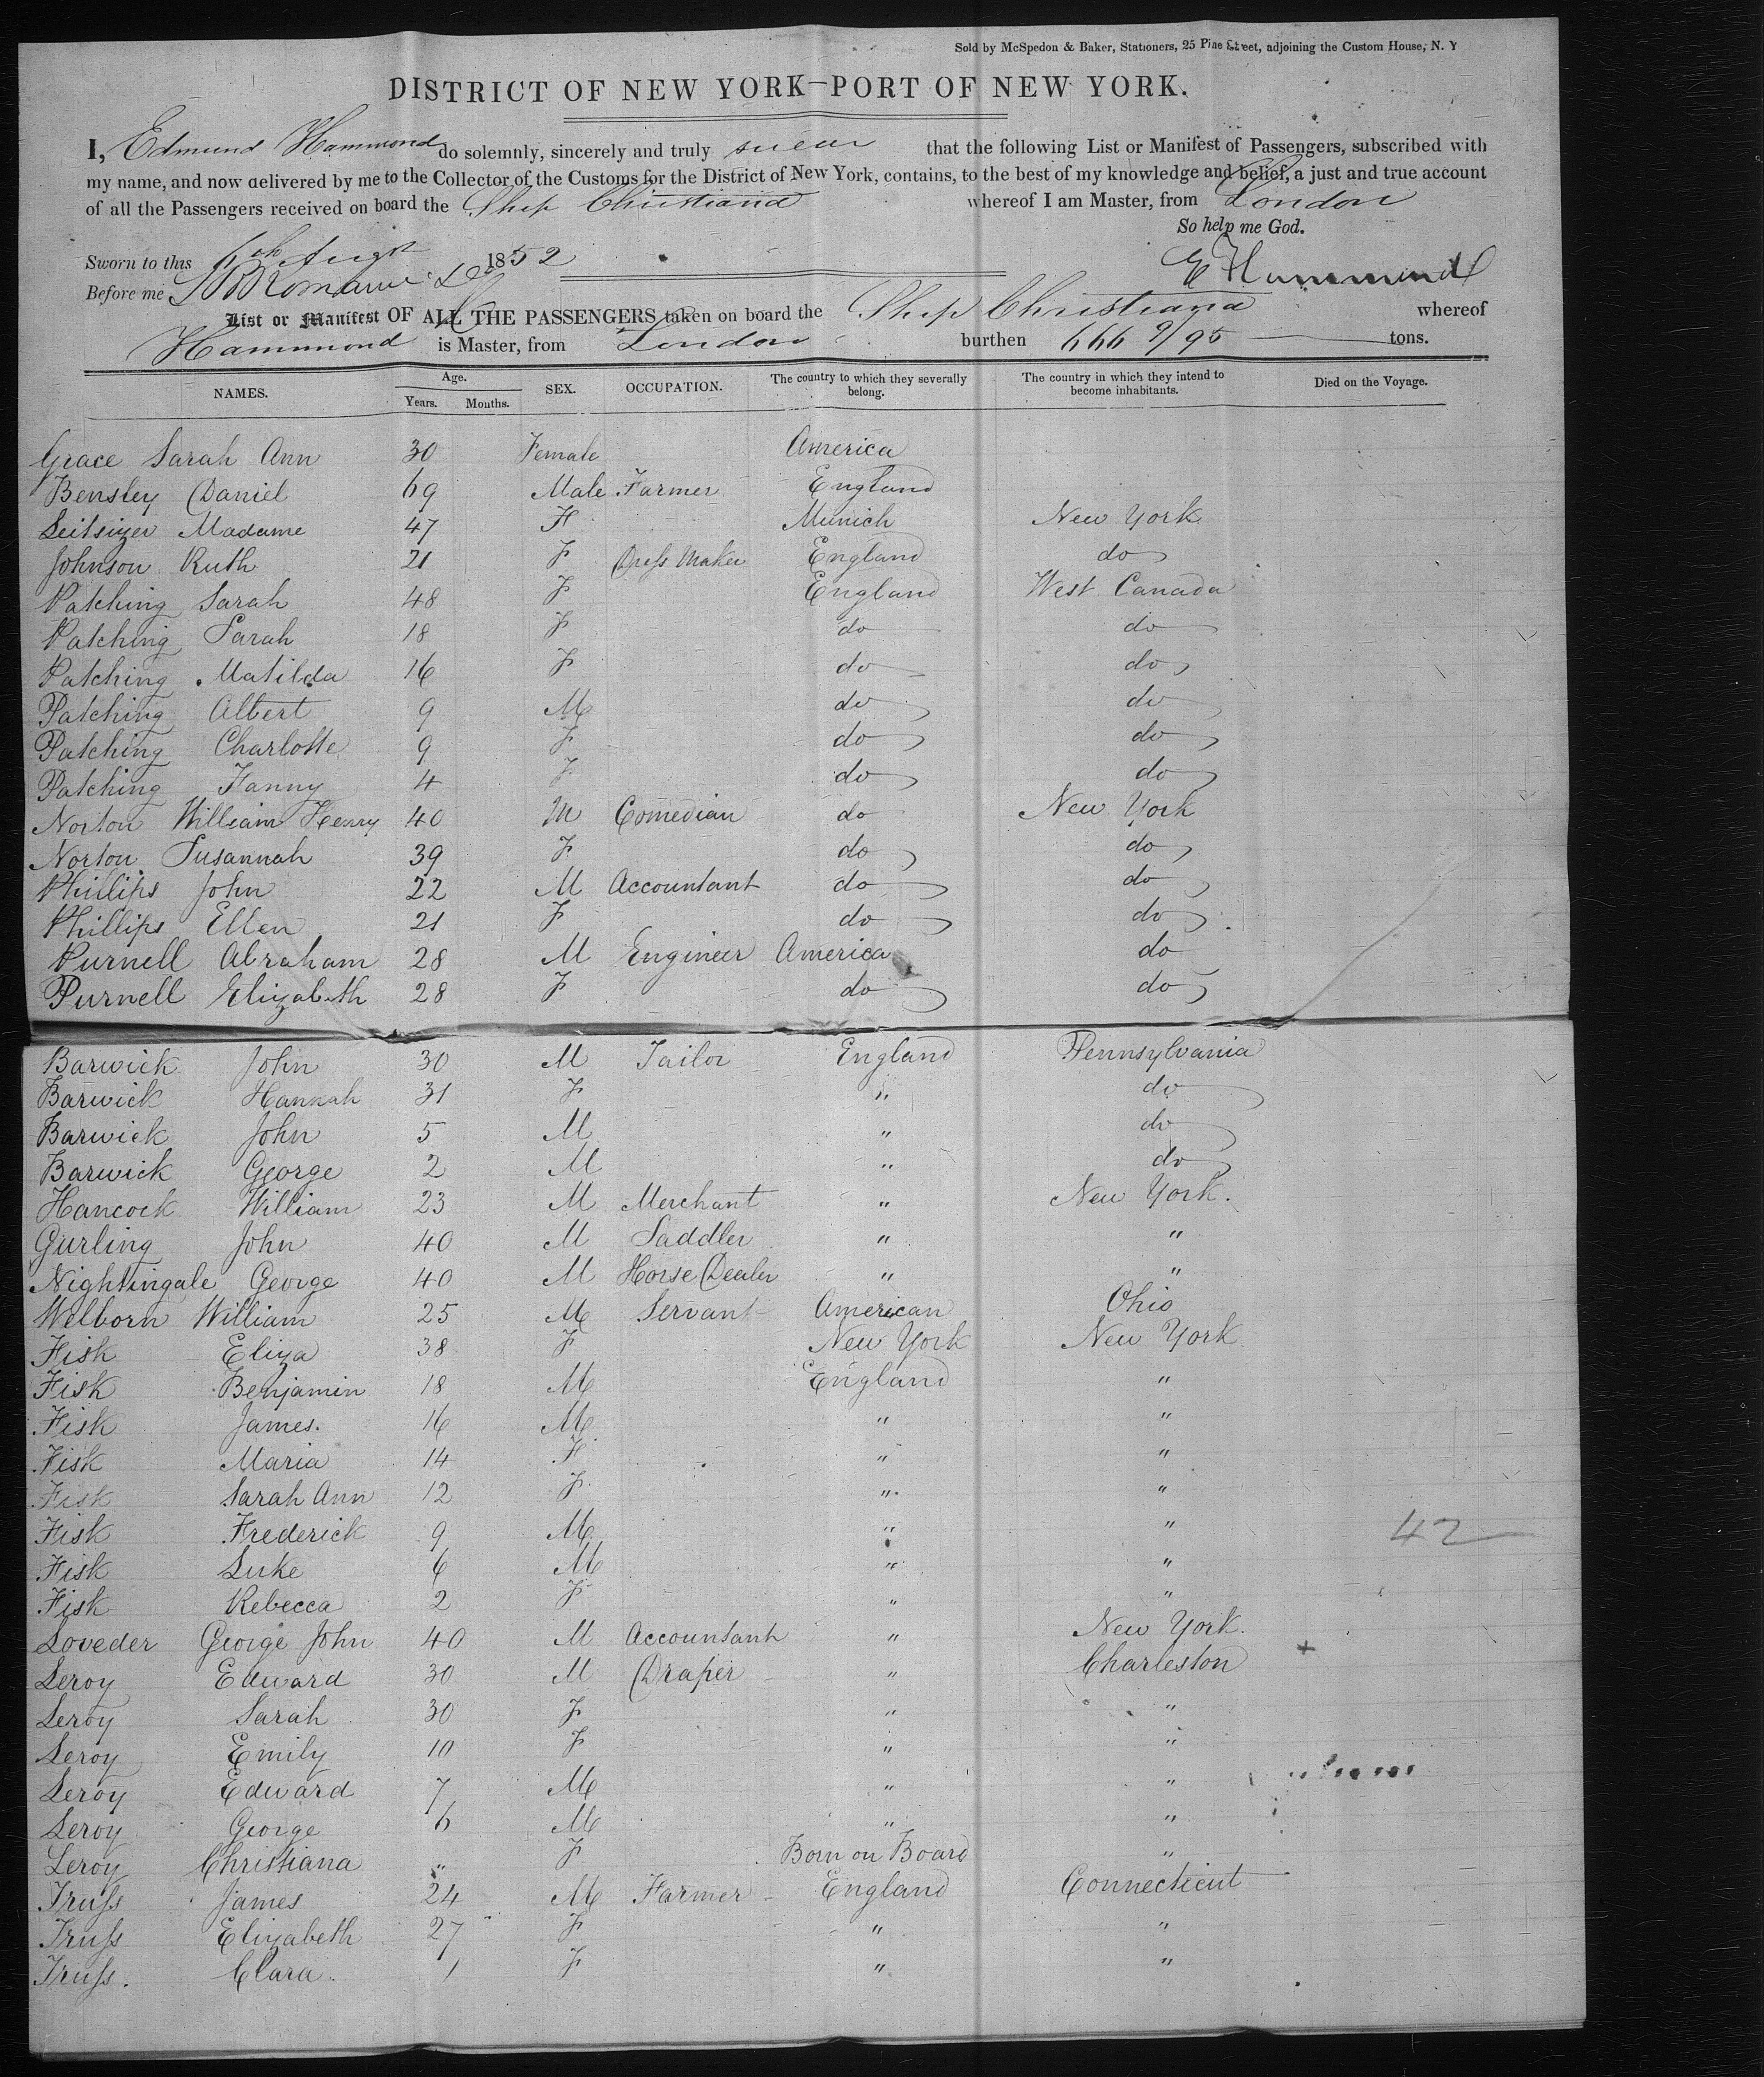 Sold by McSpedon & Baker, Stationers, 25 Pine Street, adjoining the Custom House, N. Y
DISTRICT OF NEW YORK—PORT OF NEW YORK.
I, Edmund Hammond do solemnly, sincerely and truly swear that the following List or Manifest of Passengers, subscribed with
my name, and now delivered by me to the Collector of the Customs for the District of New York, contains, to the best of my knowledge and belief, a just and true account
of all the Passengers received on board the Ship Christiana whereof I am Master, from London
So help me God.
Sworn to this 6th Augst 1852
E Hammond
Before me
List or Manifest OF ALL THE PASSENGERS taken on board the Ship Christiana whereof
Hammond is Master, from London burthen 666 9/95 tons.
NAMES. Age. Years. Months. SEX. OCCUPATION. The country to which they severally belong. The country in which they intend to become inhabitants. Died on the Voyage.
Grace Sarah Ann 30 Female America
Bensley Daniel 69 Male Farmer England
Leitsizer Madame 47 F Munich New York
Johnson Ruth 21 F Dress Maker England do
Patching Sarah 48 F England West Canada
Patching Sarah 18 F do do
Patching Matilda 16 F do do
Patching Albert 9 M do do
Patching Charlotte 9 F do do
Patching Fanny 4 F do do
Norton William Henry 40 M Comedian do New York
Norton Susannah 39 F do do
Phillips John 22 M Accountant do do
Phillips Ellen 21 F do do
Purnell Abraham 28 M Engineer America do
Purnell Elizabeth 28 F do do
Barwick John 30 M Tailor England Pennsylvania
Barwick Hannah 31 F " do
Barwick John 5 M " do
Barwick George 2 M " do
Hancock William 23 M Merchant " New York.
Gurling John 40 M Saddler " "
Nightingale George 40 M Horse Dealer " "
Welborn William 25 M Servant American Ohio
Fisk Eliza 38 F New York New York
Fisk Benjamin 18 M England "
Fisk James. 16 M " "
Fisk Maria 14 F " "
Fisk Sarah Ann 12 F " "
Fisk Frederick 9 M " " 42
Fisk Luke 6 M " "
Fisk Rebecca 2 F " "
Loveder George John 40 M Accountant " New York. +
Leroy Edward 30 M Draper " Charleston
Leroy Sarah 30 F " "
Leroy Emily 10 F " "
Leroy Edward 7 M " "
Leroy George 6 M " "
Leroy Christiana " F Born on Board "
Truss James 24 M Farmer England Connecticut
Truss Elizabeth 27 F " "
Truss. Clara. 1 F " "